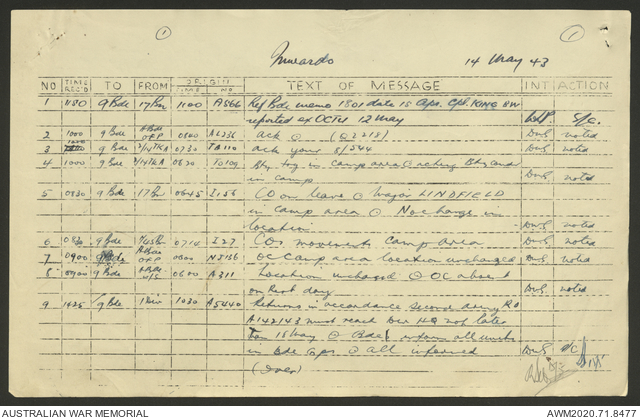 1
1
Inwards 14 May 43
ORIGIN
NO TIME REC'D TO FROM TIME NO TEXT OF MESSAGE INT ACTION
1 1130 9 Bde 17 Bn 1100 A566 Ref Bde memo 1801 date 15 Apr. Cpl. KING HW
reported ex OCTU 12 May S/C.
2 1000 9 Bde 0800 AL236 Ack @ (Q2218) DWS noted
3 9 Bde 0730 TB110 Ack your S/544 DWS noted
4 1000 9 Bde 0830 TO109 Bty trg in camp area @ acting Bty Cmd
in camp DWS noted
5 0830 9 Bde 17 Bn 0645 I156 CO on leave @ Major LINDFIELD
in camp area @ No change in
location DWS noted
6 0830 9 Bde 0714 I27 COs movements camp area DWS noted
7 0900 9 Bde 0800 N5156 OC Camp area location unchanged DWS noted
8 0900 9 Bde 0600 A311 Location unchged @ OC absent
on Recce duty DWS noted
9 1425 9 Bde 1 Div 1030 A5440 Returns in accordance second army RO
A142143 must reach Div HQ not later
15 May @ Bde inform all units
in Bde Gps @ all informed DWS S/C
(over)
AUSTRALIAN WAR MEMORIAL AWM2020.71.8477